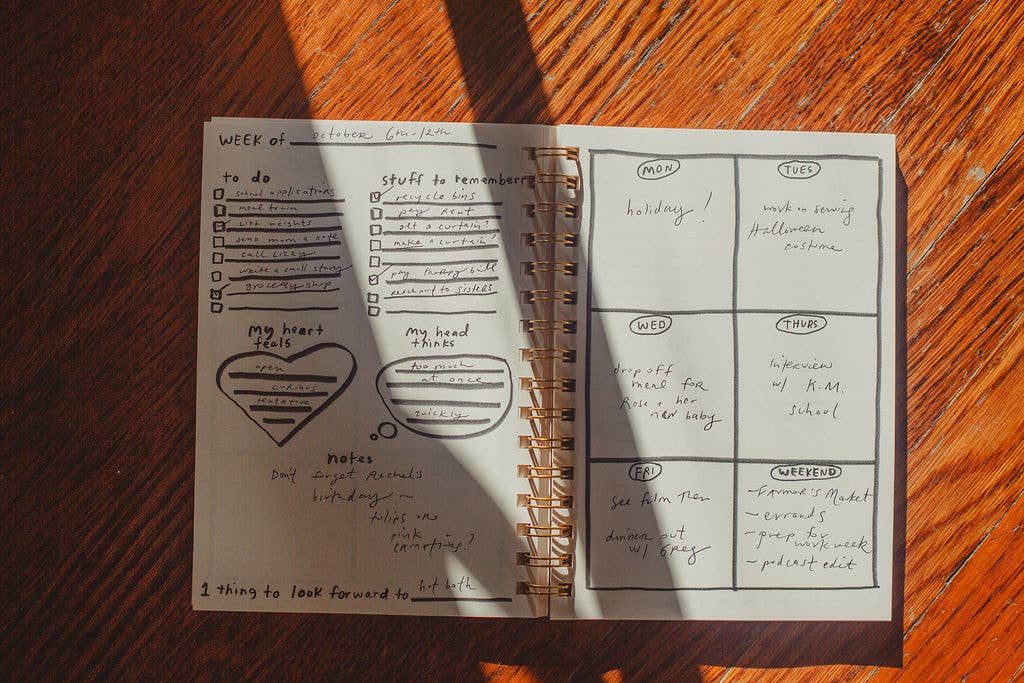 WEEK of October 6th-12th
to do
school applications
meal train
lift weights
send mom a note
call Lizzy
write a small story
grocery shop
stuff to remember
recycle bins
pay rent
get a curtain?
make a curtain?
pay therapy bill
reach out to sisters
my heart
feels
open
curious
tentative
my head
thinks
too much
at once
quickly
notes
Don't forget Rachel's
birthday ~
tulips or
pink
carnations?
1 thing to look forward to hot bath
MON
holiday!
TUES
work on sewing
Halloween
costume
WED
drop off
meal for
Rose + her
new baby
THURS
interview
w/ K.M.
school
FRI
see film then
dinner out
w/ Greg
WEEKEND
~Farmor's Market
~ errands
~ prep for
work week
~ podcast edit